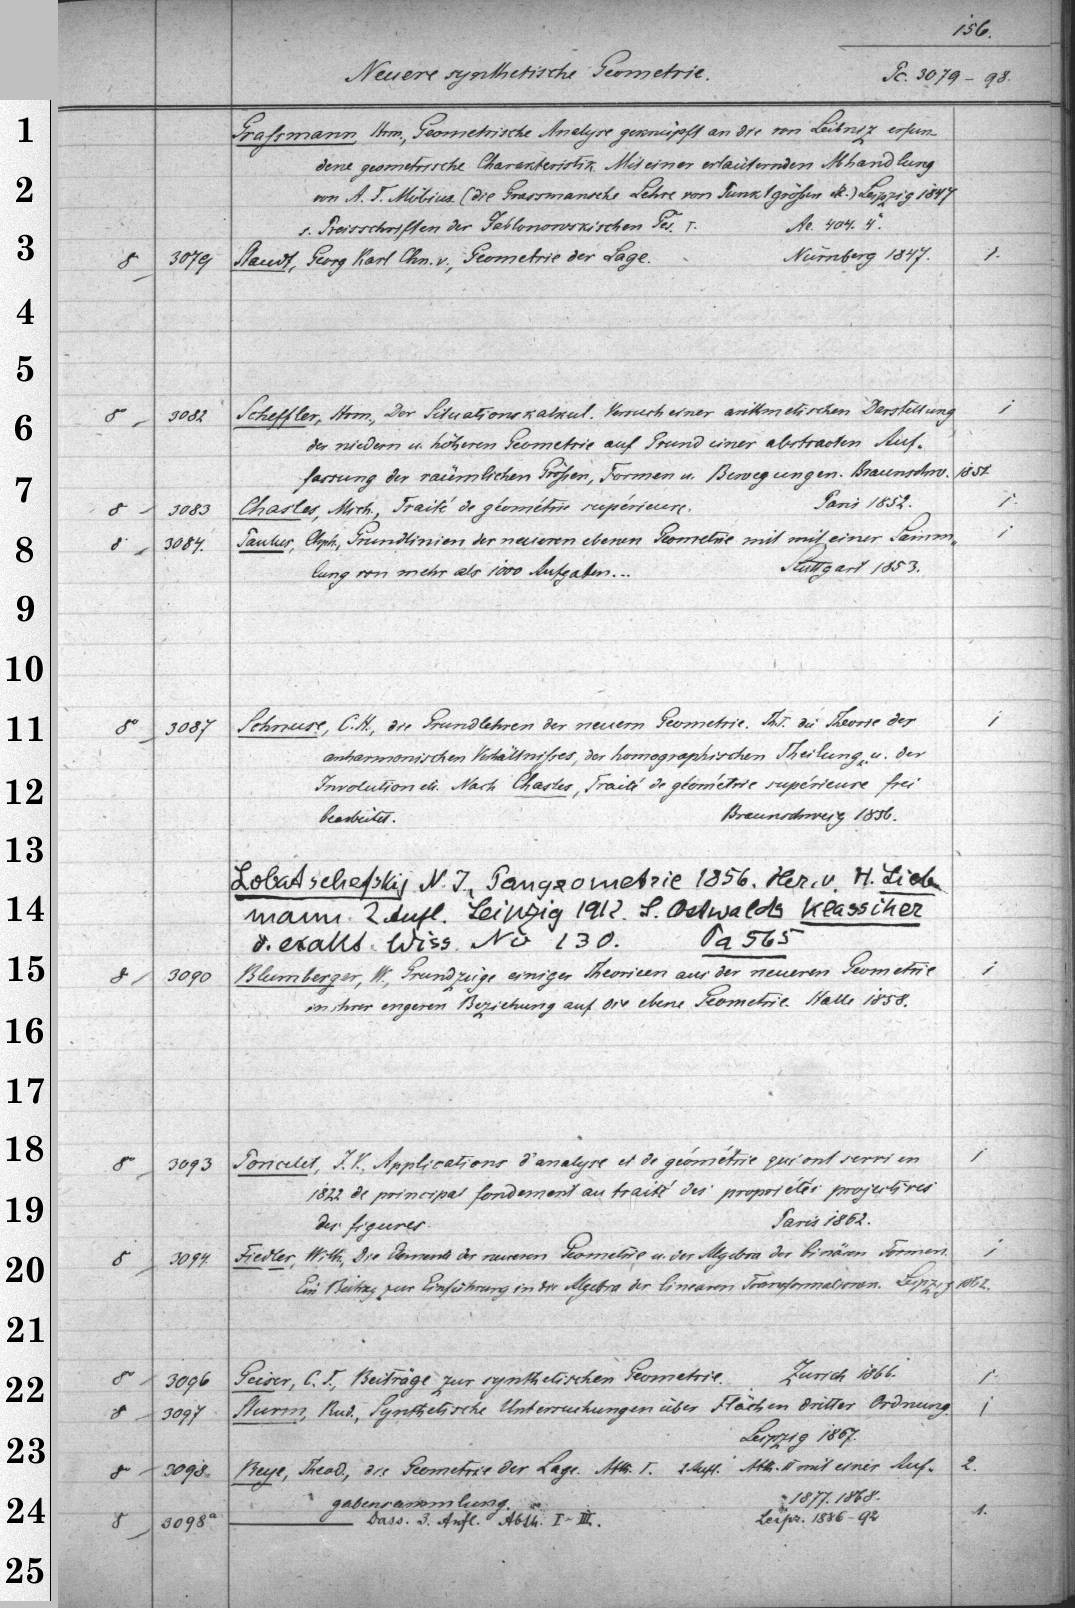 156.
Neuere synthetische Geometrie. Pc. 3079 – 98.
1 Grassmann Hrm., Geometrische Analyse geknüpft an die von Leibniz erfun
dene geometrische Charakteristik. Mit einer erläuternden Abhandlung
2 von A. F. Möbius. (die Grassmannsche Lehre von Punktgrößen etc.) Leipzig 1847
s. Preisschriften der Jablonowskischen Ges. I. Ae. 404. 4°.
3 8 3079 Staudt, Georg Karl Chn. v., Geometrie der Lage. Nürnberg 1847. 1.
4
5
6 8° 3082 Scheffler, Hrm., Der Situationskalkul. Versuch einer arithmetischen Darstellung 1
der niedern u. höheren Geometrie auf Grund einer abstracten Auf-
7 fassung der räumlichen Größen, Formen u. Bewegungen. Braunschw. 1851.
8 3083 Chasles, Mich., Traité de géométrie supérieure. Paris 1852. 1.
8 8 3084. Paulus, Chph., Grundlinien der neueren ebenen Geometrie mit mit einer Samm- 1
lung von mehr als 1000 Aufgaben... Stuttgart 1853.
9
10
11 8° 3087 Schnuse, C. H., die Grundlehren der neuern Geometrie. Th. I. die Theorie der 1
anharmonischen Verhältnisses, der homographischen Theilung u. der
12 Involution etc. Nach Chasles, Traité de géométrie supérieure frei
bearbeitet. Braunschweig 1856.
13
Lobatschefskij N. J., Pangeometrie 1856. Her. v. H. Lieb
14 mann 2 Aufl. Leipzig 1912. S. Ostwalds Klassiker
d. exakt. Wiss. No 130. Pa 565
15 8 3090 Blumberger, W., Grundzüge einiger Theorieen aus der neueren Geometrie 1
in ihrer engeren Beziehung auf die ebene Geometrie. Halle 1858.
16
17
18 8° 3093 Poncelet, J. V., Applications d'analyse et de géométrie qui ont servi en 1
1822 de principal fondement au traité des propriétés projectives
19 des figures. Paris 1862.
20 8 3094. Fiedler, Wilh., Die Elemente der neueren Geometrie u. der Algebra der binären Formen. 1
Ein Beitrag zur Einführung in die Algebra der linearen Transformationen. Leipzig 1862.
21
22 8° 3096 Geiser, C. F., Beiträge zur synthetischen Geometrie. Zurich 1866. 1.
8 3097 Sturm, Rud., Synthetische Untersuchungen über Flächen dritter Ordnung. 1
23 Leipzig 1867.
8 3098. Reye, Theod., die Geometrie der Lage. Abth. I. 2 Aufl. Abth. II mit einer Auf- 2.
gabensammlung. 1877. 1868.
24 8 3098a Dass. 3. Aufl. Abth. I – III. Leipz. 1886–92 1.
25